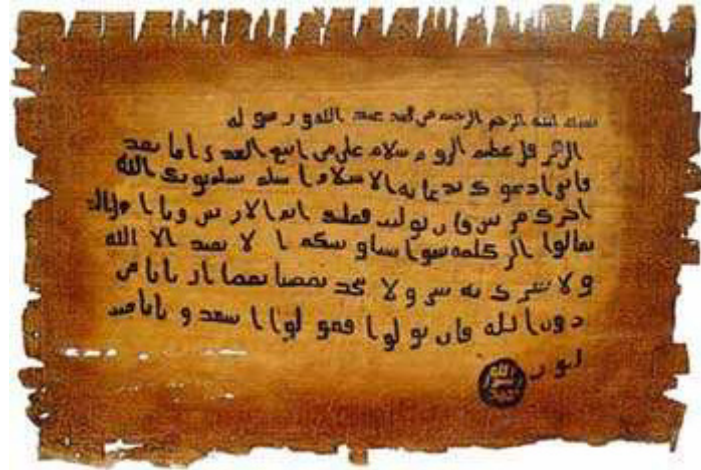 بسم الله الرحمن الرحيم من محمد عبد الله و رسوله
الى هرقل عظيم الروم سلام على من اتبع الهدى اما بعد
فانى ادعوك بدعاية الاسلام اسلم تسلم يوتك الله
اجرك مرتين فان توليت فعليك اثم الاريسين ويا اهل
تعالوا الى كلمة سوا بيننا وبينكم ا لا نعبد الا الله
ولا نشرك به شى ولا يتخذ بعضنا بعضا اربابا من
دون الله فان تولوا فقولوا اشهدو بانا مسـ
لمون
الله
رسول
محمد